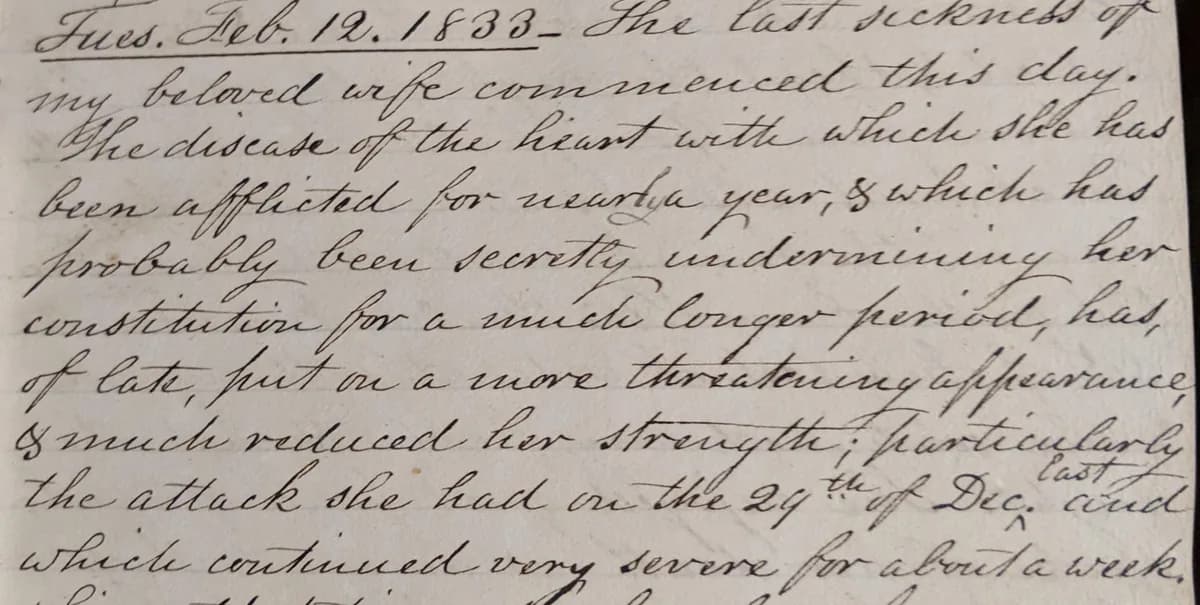 Tues. Feb. 12. 1833_ The last sickness of
my beloved wife commenced this day.
The disease of the heart with which she has
been afflicted for nearly a year, & which has
probably been secretly undermining her
constitution for a much longer period, has,
of late, put on a more threatening appearance,
& much reduced her strength; particularly
the attack she had on the 29th of Dec. last and
which continued very severe for about a week.